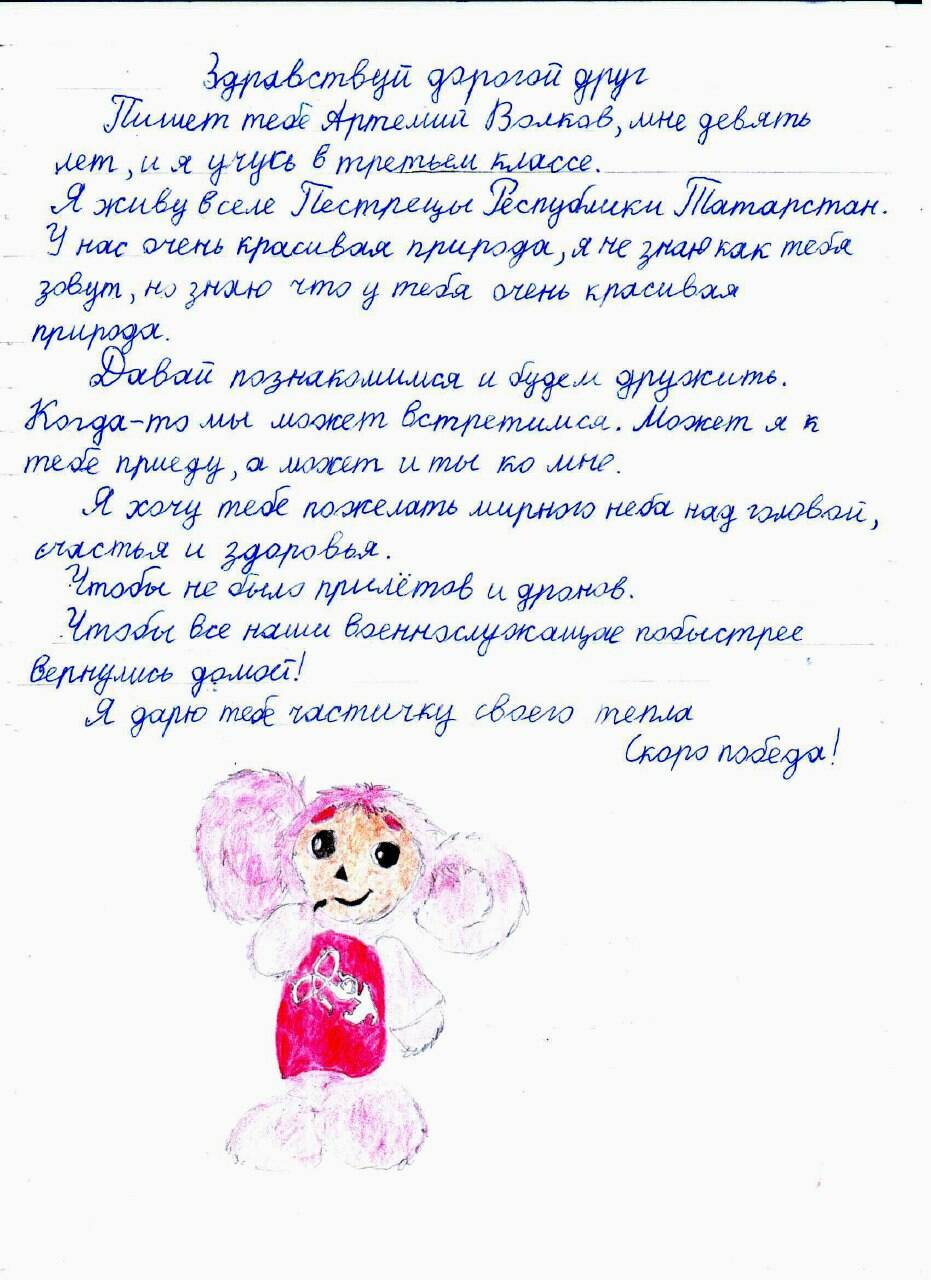 Здравствуй дорогой друг
Пишет тебе Артемий Волков, мне девять
лет, и я учусь в третьем классе.
Я живу в селе Пестрецы Республики Татарстан.
У нас очень красивая природа, я не знаю как тебя
зовут, но знаю что у тебя очень красивая
природа.
Давай познакомимся и будем дружить.
Когда-то мы может встретимся. Может я к
тебе приеду, а может и ты ко мне.
Я хочу тебе пожелать мирного неба над головой,
счастья и здоровья.
Чтобы не было прилётов и дронов.
Чтобы все наши военнослужащие побыстрее
вернулись домой!
Я дарю тебе частичку своего тепла
Скоро победа!